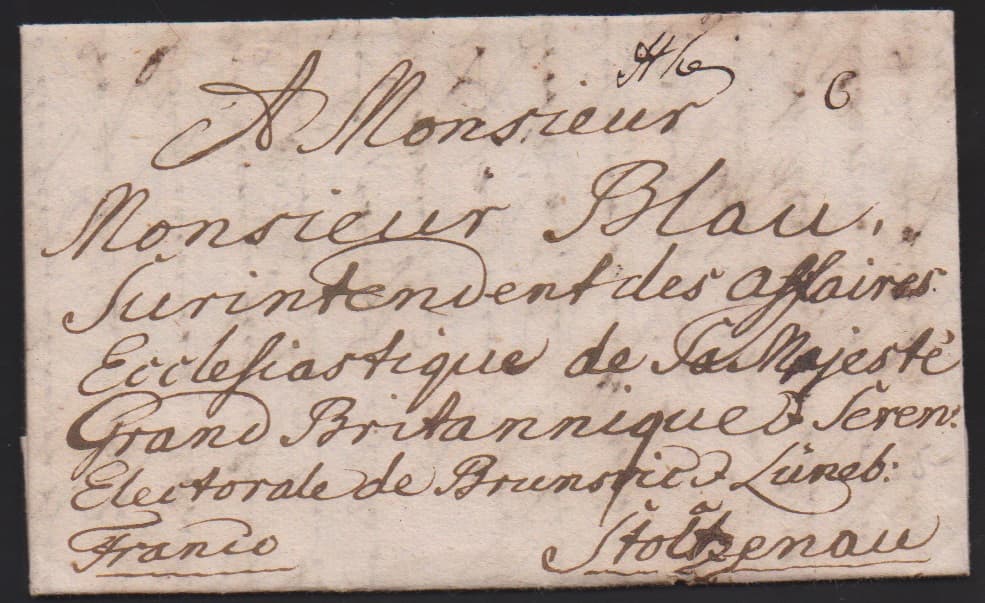 6
A Monsieur
Monsieur Blau,
Surintendent des affaires
Ecclesiastique de Sa Majesté
Grand Britannique & Seren:
Electorale de Brunsvic & Lüneb:
Franco
à Stoltzenau